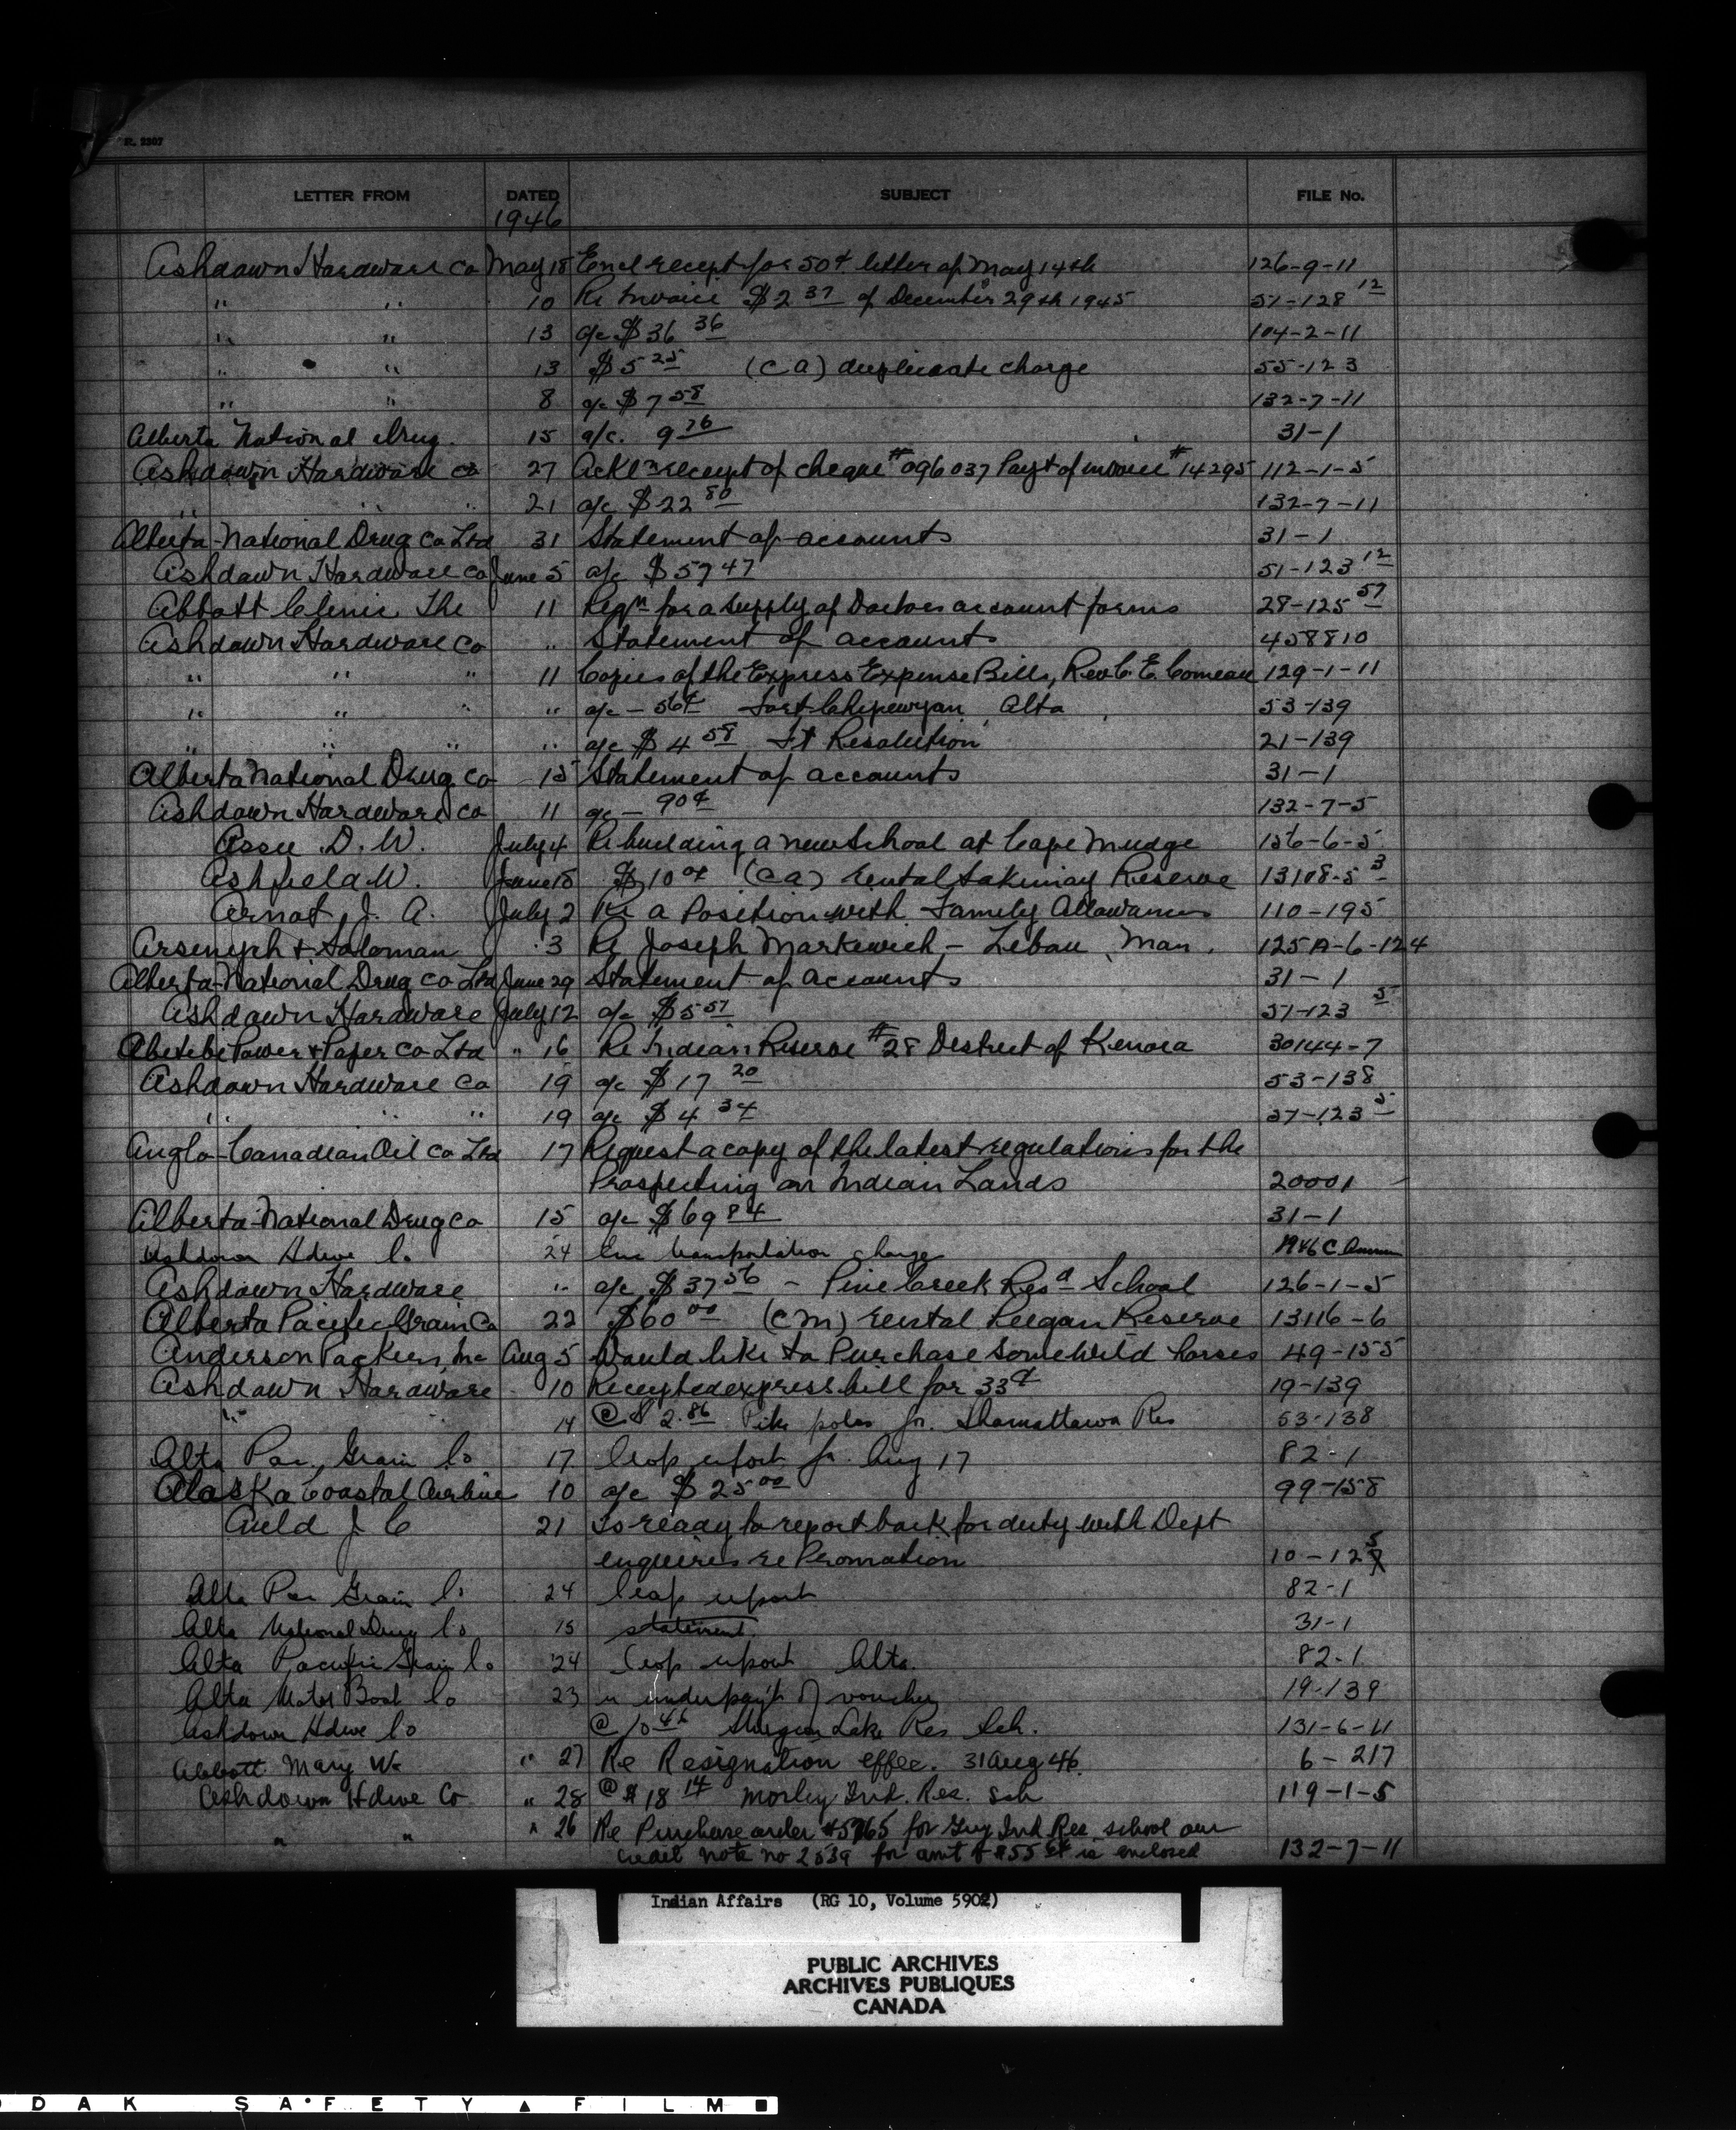 R. 2307
LETTER FROM DATED SUBJECT FILE No.
1946
Ashdown Hardware Co May 18 Encl receipt for 50¢ letter of May 14th 126-9-11
" " 10 Re Invoice $2 37 of December 29th 1945 51-128 12
" " 13 a/c $36 36 104-2-11
" " 13 $5 25 (C A) duplicate charge 55-123
" " 8 a/c $7 58 132-7-11
Alberta National Drug 15 a/c. 9 76 31-1
Ashdown Hardware Co 27 Ackl n receipt of cheque #096037 Payt of invoice #14295 112-1-5
" " 21 a/c $22 80 132-7-11
Alberta-National Drug Co Ltd 31 Statement of accounts 31-1
Ashdown Hardware Co June 5 a/c $57 47 51-123 12
Abbott Clinic The 11 Reqn for a supply of Doctors account forms 28-125 57
Ashdown Hardware Co " Statement of accounts 458810
" " " 11 Copies of the Express Expense Bills, Rev. C. E. Comeau 129-1-11
" " " " a/c - 56¢ Fort Chipewyan Alta 53-139
" " " " a/c $4 58 Ft Resolution 21-139
Alberta National Drug Co 15 Statement of accounts 31-1
Ashdown Hardware Co 11 a/c - 90¢ 132-7-5
Assu D. W. July 4 Re building a new School at Cape Mudge 156-6-5
Ashfield W. June 18 $10 00 (C A) rental Sakimay Reserve 13108-5 3
Arnot, J. A. July 2 Re a Position with Family Allowances 110-195
Arsenych & Soloman 3 Re Joseph Markewich - Lebau, Man. 125A-6-124
Alberta-National Drug Co Ltd June 29 Statement of accounts 31-1
Ashdown Hardware July 12 a/c $5 57 51-123 5
Abitibi Power & Paper Co Ltd " 16 Re Indian Reserve #28 District of Kenora 30144-7
Ashdown Hardware Co 19 a/c $17 20 53-138
" " " 19 a/c $4 34 37-123 5
Anglo-Canadian Oil Co Ltd 17 Request a copy of the latest regulations for the
Prospecting on Indian Lands 20001
Alberta-National Drug Co 15 a/c $69 84 31-1
Ashdown Hdwe Co 24 Enc transportation charges 1946 C
Ashdown Hardware " a/c $37 56 - Pine Creek Resd School 126-1-5
Alberta Pacific Grain Co 22 $60 00 (C M) rental Peigan Reserve 13116-6
Anderson Packers, Inc Aug 5 Would like to Purchase some Wild horses 49-155
Ashdown Hardware 10 Receipted express bill for 33¢ 19-139
" 14 @ $2.86 Pike poles for Shamattawa Res 53-138
Alta Pac. Grain Co 17 Crop report for Aug 17 82-1
Alaska Coastal Airlines 10 a/c $25 00 99-158
Auld J C 21 is ready to report back for duty with Dept
enquires re Promotion 10-125
Alta Pac Grain Co 24 Crop report 82-1
Alta National Drug Co 15 statement 31-1
Alta Pacific Grain Co 24 Crop report Alta. 82-1
Alta Motor Boat Co 23 re underpay't of voucher 19-139
Ashdown Hdwe Co @ 10 46 Sturgeon Lake Res Sch. 131-6-11
Abbott Mary W. " 27 Re Resignation effec. 31 Aug 46. 6-217
Ashdown Hdwe Co " 28 @ $18 14 Morley Ind. Res. Sch 119-1-5
" " " 26 Re Purchase order #5765 for Guy Ind Res. school our
credit note no 2539 for amt of $55 is enclosed 132-7-11
Indian Affairs (RG 10, Volume 5902)
PUBLIC ARCHIVES
ARCHIVES PUBLIQUES
CANADA
DAK SAFETY ▲ FILM ■